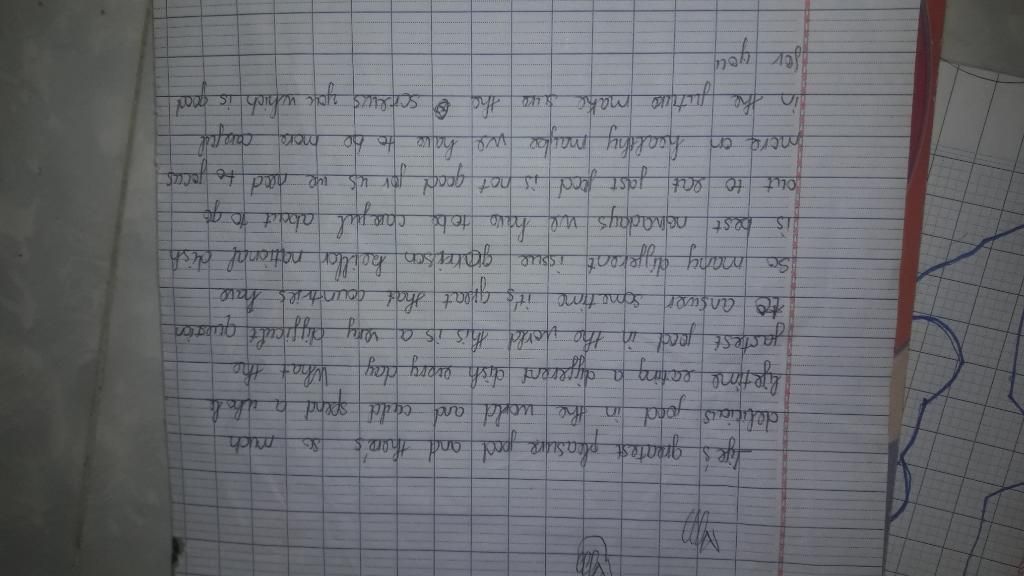 life's greatest pleasure food and there's so much
delicious food in the world and could spend a whole
lifetime eating a different dish every day What the
fastest food in the world this is a very difficult question
to answer sometime it's great that countries have
so many different issue national dish
is best nowadays we have to be careful about to go
out to eat fast food is not good for us we need to focus
more on healthy maybe we have to be more careful
in the future make sure the you which is good
for you